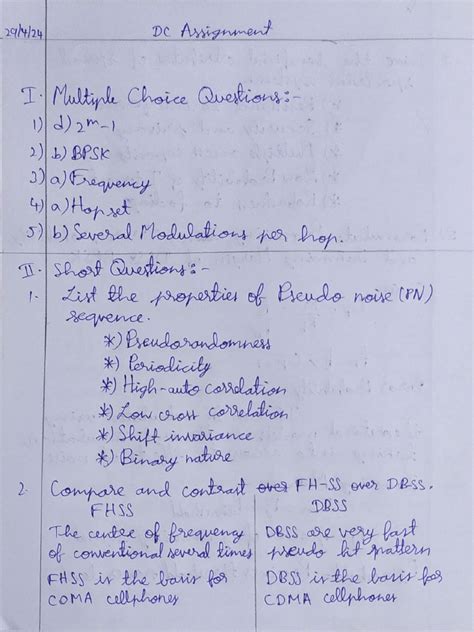 29/4/24
DC Assignment
I. Multiple Choice Questions:-
1) d) 2^m-1
2) b) BPSK
3) a) Frequency
4) a) Hop set
5) b) Several Modulations per hop.
II. Short Questions:-
1. List the properties of Pseudo noise (PN)
sequence.
*) Pseudorandomness
*) Periodicity
*) High-auto correlation
*) Low cross correlation
*) Shift invariance
*) Binary nature
2. Compare and contrast over FH-SS over DBSS.
FHSS
DBSS
The centre of frequency
of conventional several times
DBSS are very fast
pseudo bit pattern
FHSS is the basis for
CDMA cellphones
DBSS is the basis for
CDMA cellphones